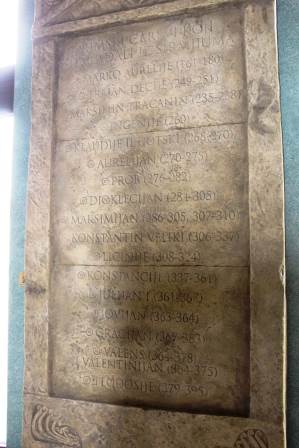 RIMSKI CAREVI KOJI
MARKO AURELIJE (161-180)
TRAJAN DECIJE (249-251)
MAKSIMIN TRAČANIN (235-238)
INGENUJE (260)
KLAUDIJE II GOTSKI (268-270)
AURELIJAN (270-275)
PROB (276-282)
DIOKLECIJAN (284-305)
MAKSIMIJAN (286-305, 307-310)
KONSTANTIN VELIKI (306-337)
LICINIJE (308-324)
KONSTANCIJE (337-361)
JULIJAN (361-363)
JOVIJAN (363-364)
GRACIJAN (367-383)
VALENS (364-378)
VALENTINIJAN (364-375)
TEODOSIJE (379-395)